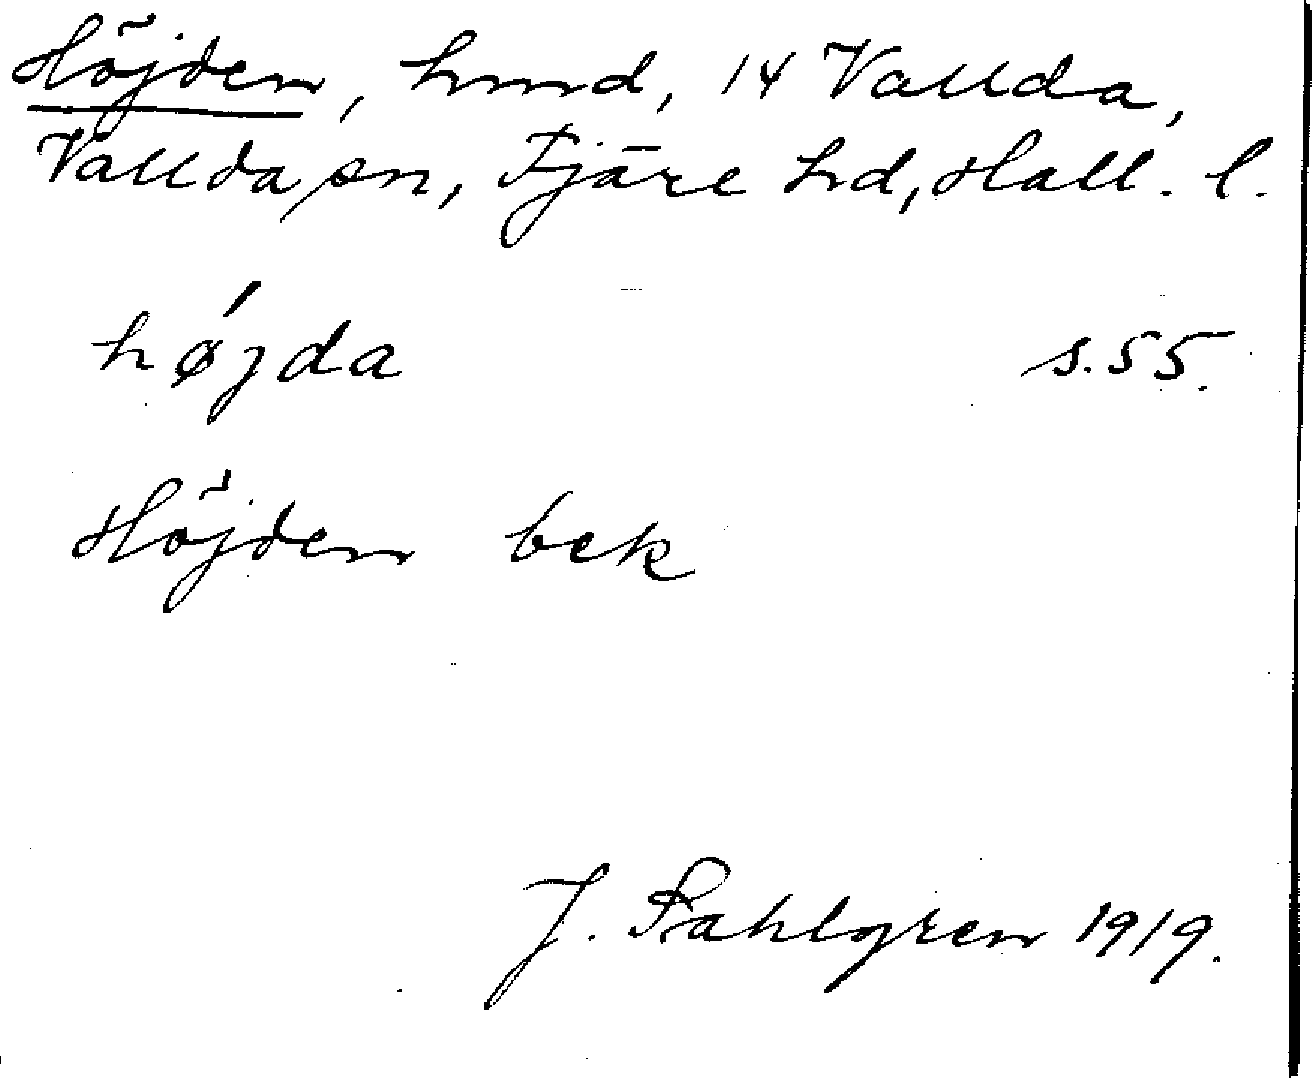 Höjden, hmd, 14 Vallda,
Vallda sn, Fjäre hd, Hall. l.
hǿjda s. 55.
Höjden bek
J. Sahlgren 1919.